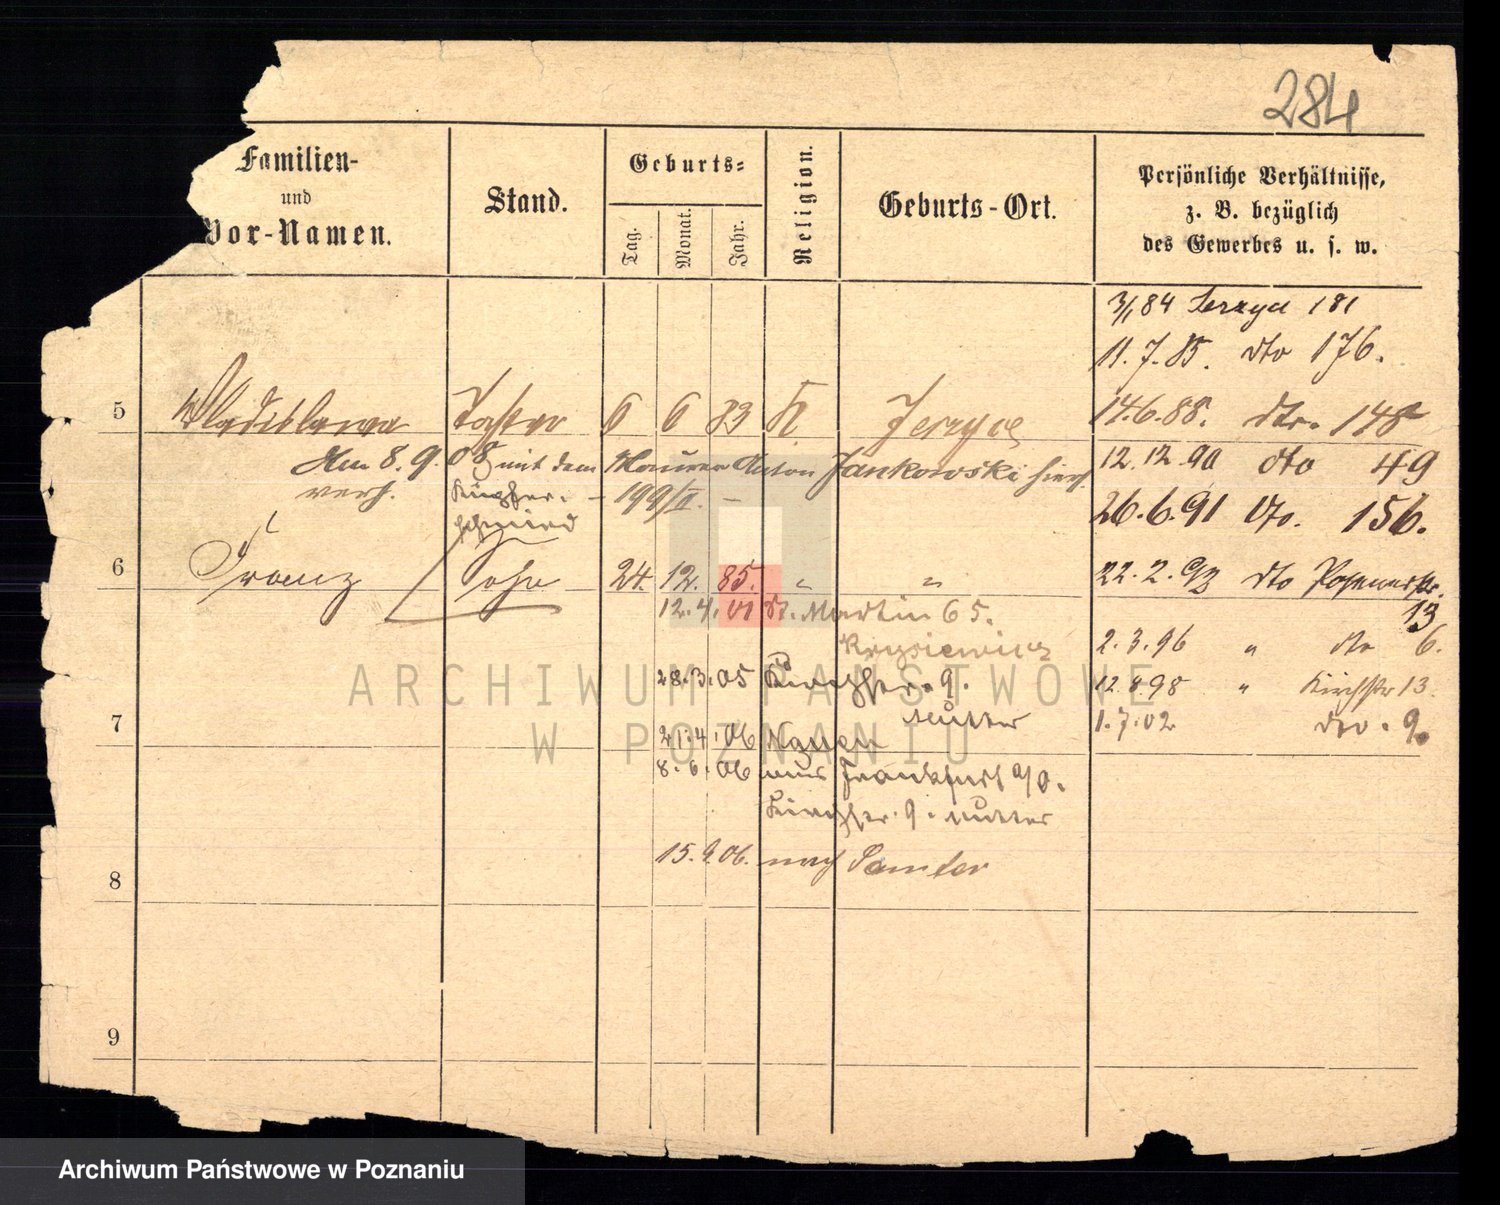 284
Familien-
und
Vor-Namen.
Stand.
Geburts-
Tag.
Monat.
Jahr.
Religion.
Geburts-Ort.
Persönliche Verhältnisse,
z. B. bezüglich
des Gewerbes u. s. w.
3/1 84 Jerzyce 181
11.7.85. dto 176.
5 Wladislawa Tochter 6 6 83 K. Jerzyce
14.6.88. dto. 148
Am 8.9.08 mit dem Maurer Anton Jankowski hier
verh.
199/II. –
12.12.90 dto 49
26.6.91 dto. 156.
Kupfer-
schmied
6 Franz Sohn 24. 12. 85. " "
22.2.93 dto Posenerstr.
13
12.4.01 St. Martin 65.
Krysiewicz
2.3.96 " dto 6.
28.3.05 Kirchstr. 9.
Mutter
12.8.98 " Kirchstr 13.
1.7.02 dto. 9.
7
21.4.06
8.6.06 aus Frankfurt a/O.
Kirchstr. 9. Mutter
15.9.06. nach Samter
8
9
ARCHIWUM PAŃSTWOWE
W POZNANIU
Archiwum Państwowe w Poznaniu